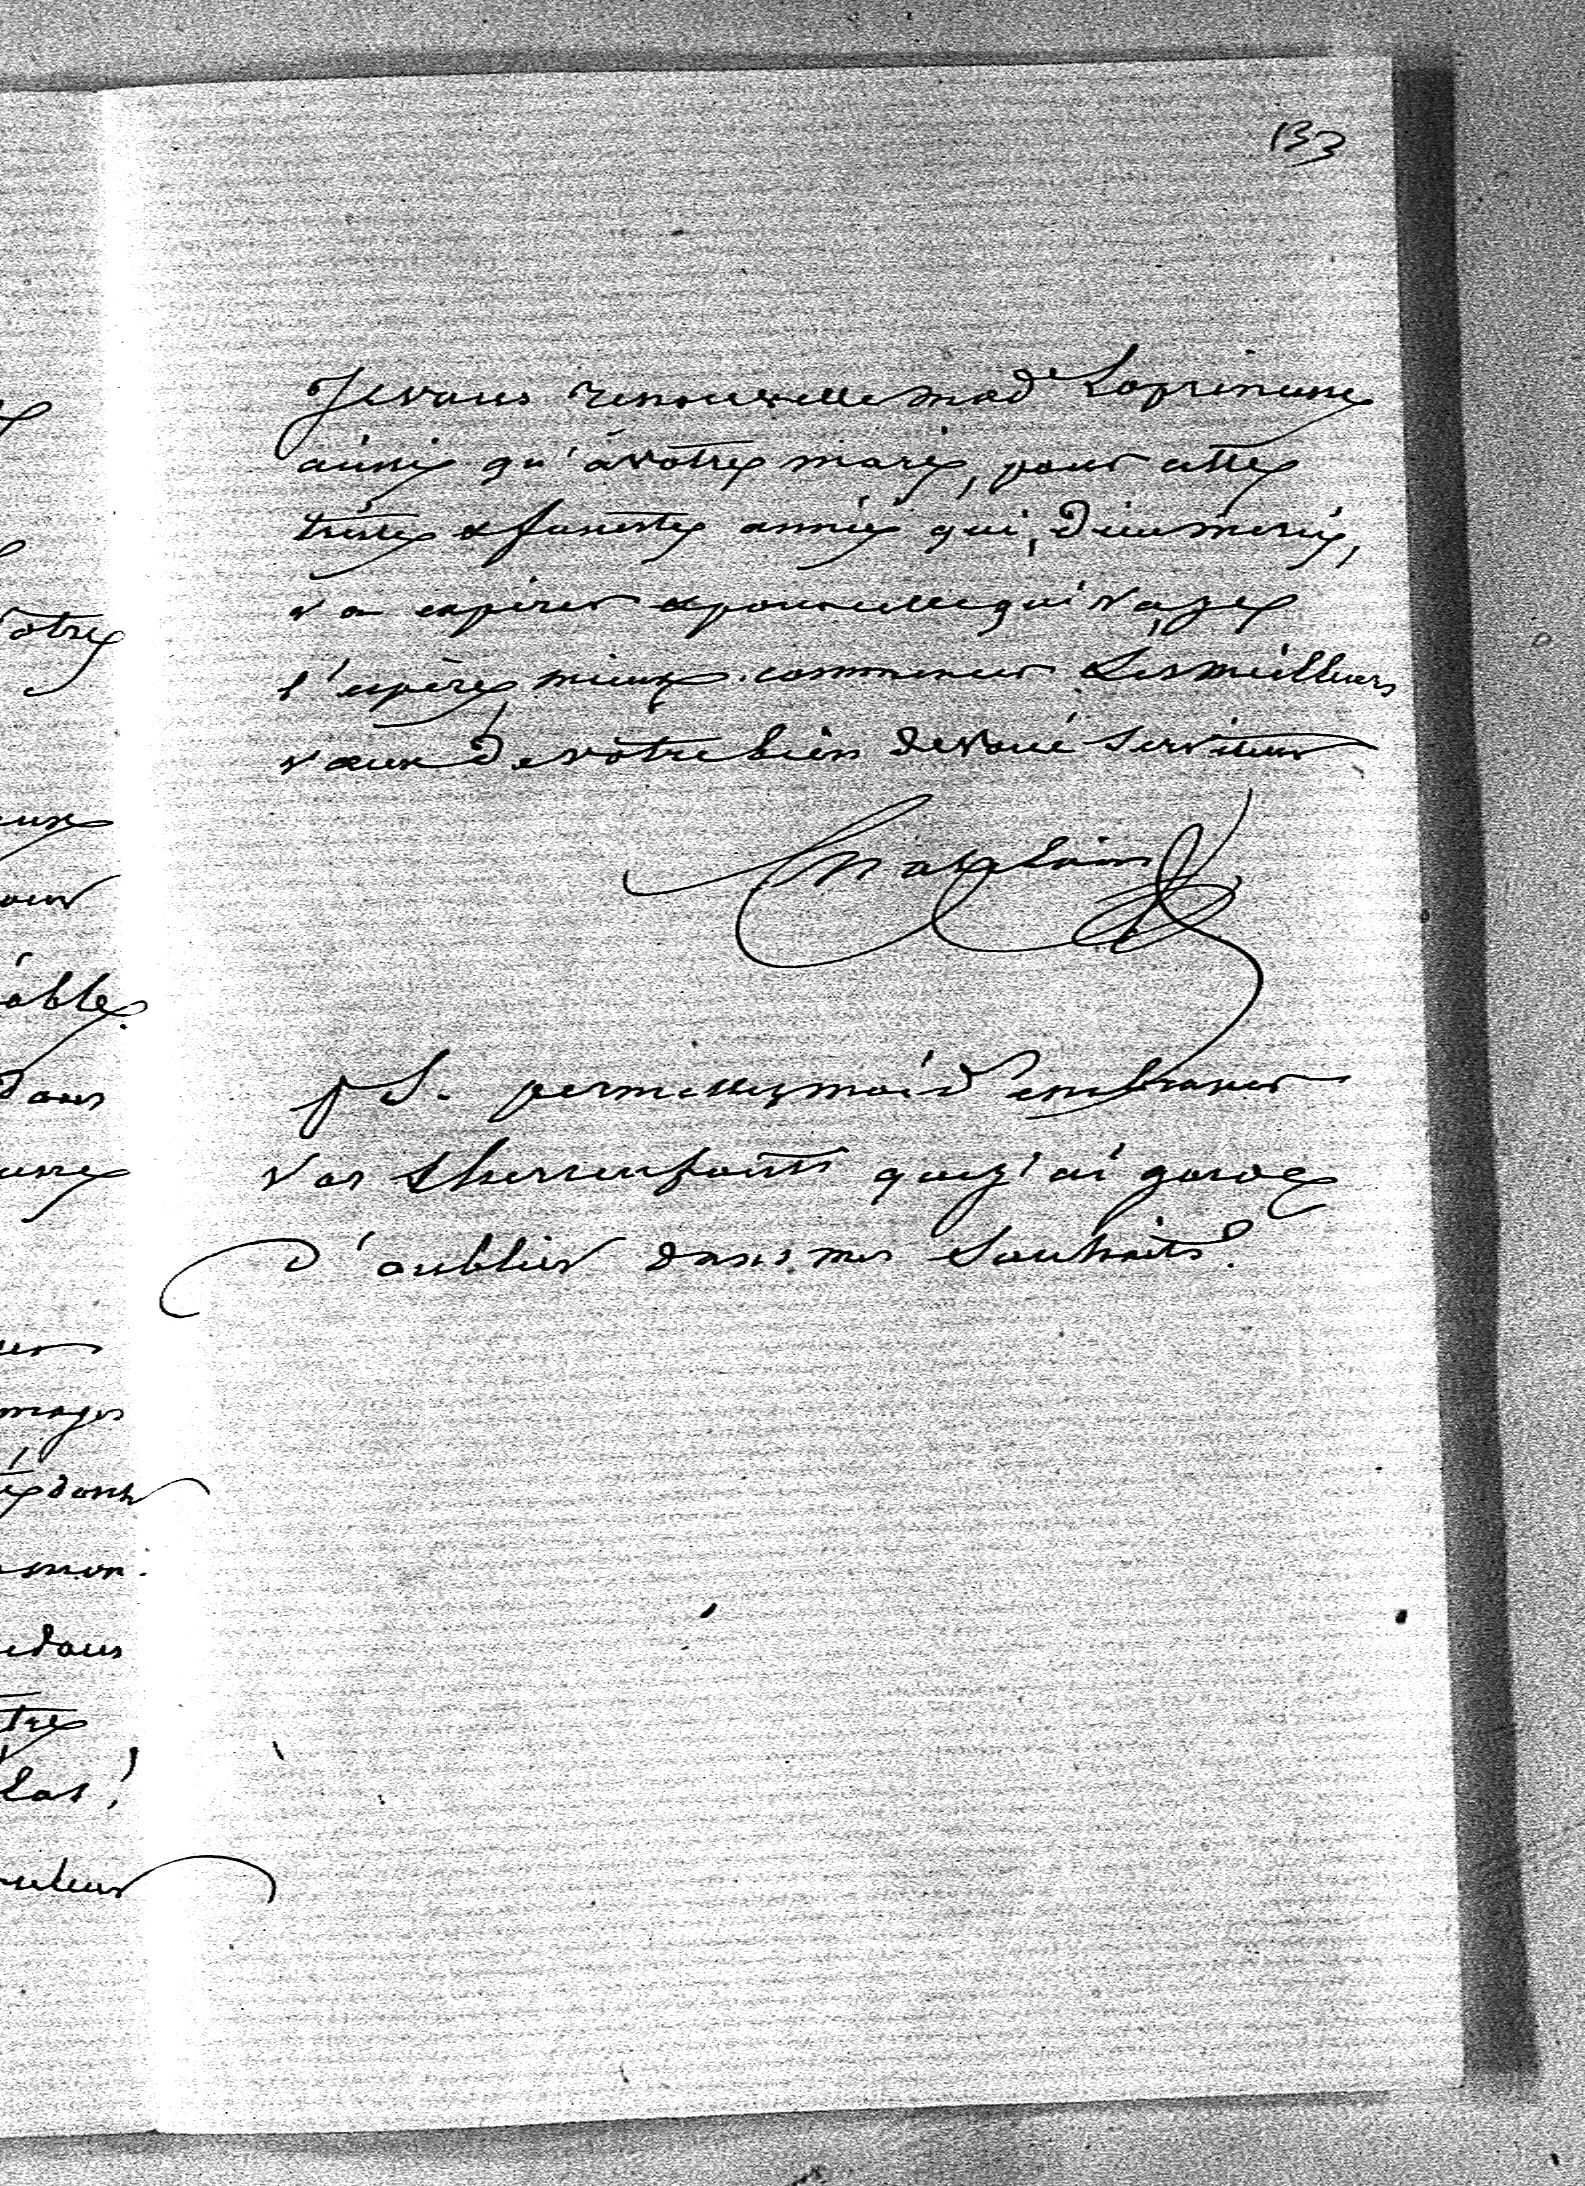 133
Je vous renouvelle Mad^e
ainsi qu'à votre mari, pour cette
triste & funeste année qui, Dieu merci,
va expirer & pour celle qui va, je
l'espère, mieux commencer Les meilleurs
vœux de votre bien dévoué serviteur
PS. permettez moi d'embrasser
Vos chers enfants que j'ai garde
d'oublier dans mes souhaits.
otre
our
able.
dans
mages
dont
mon.
dans
tre
las!